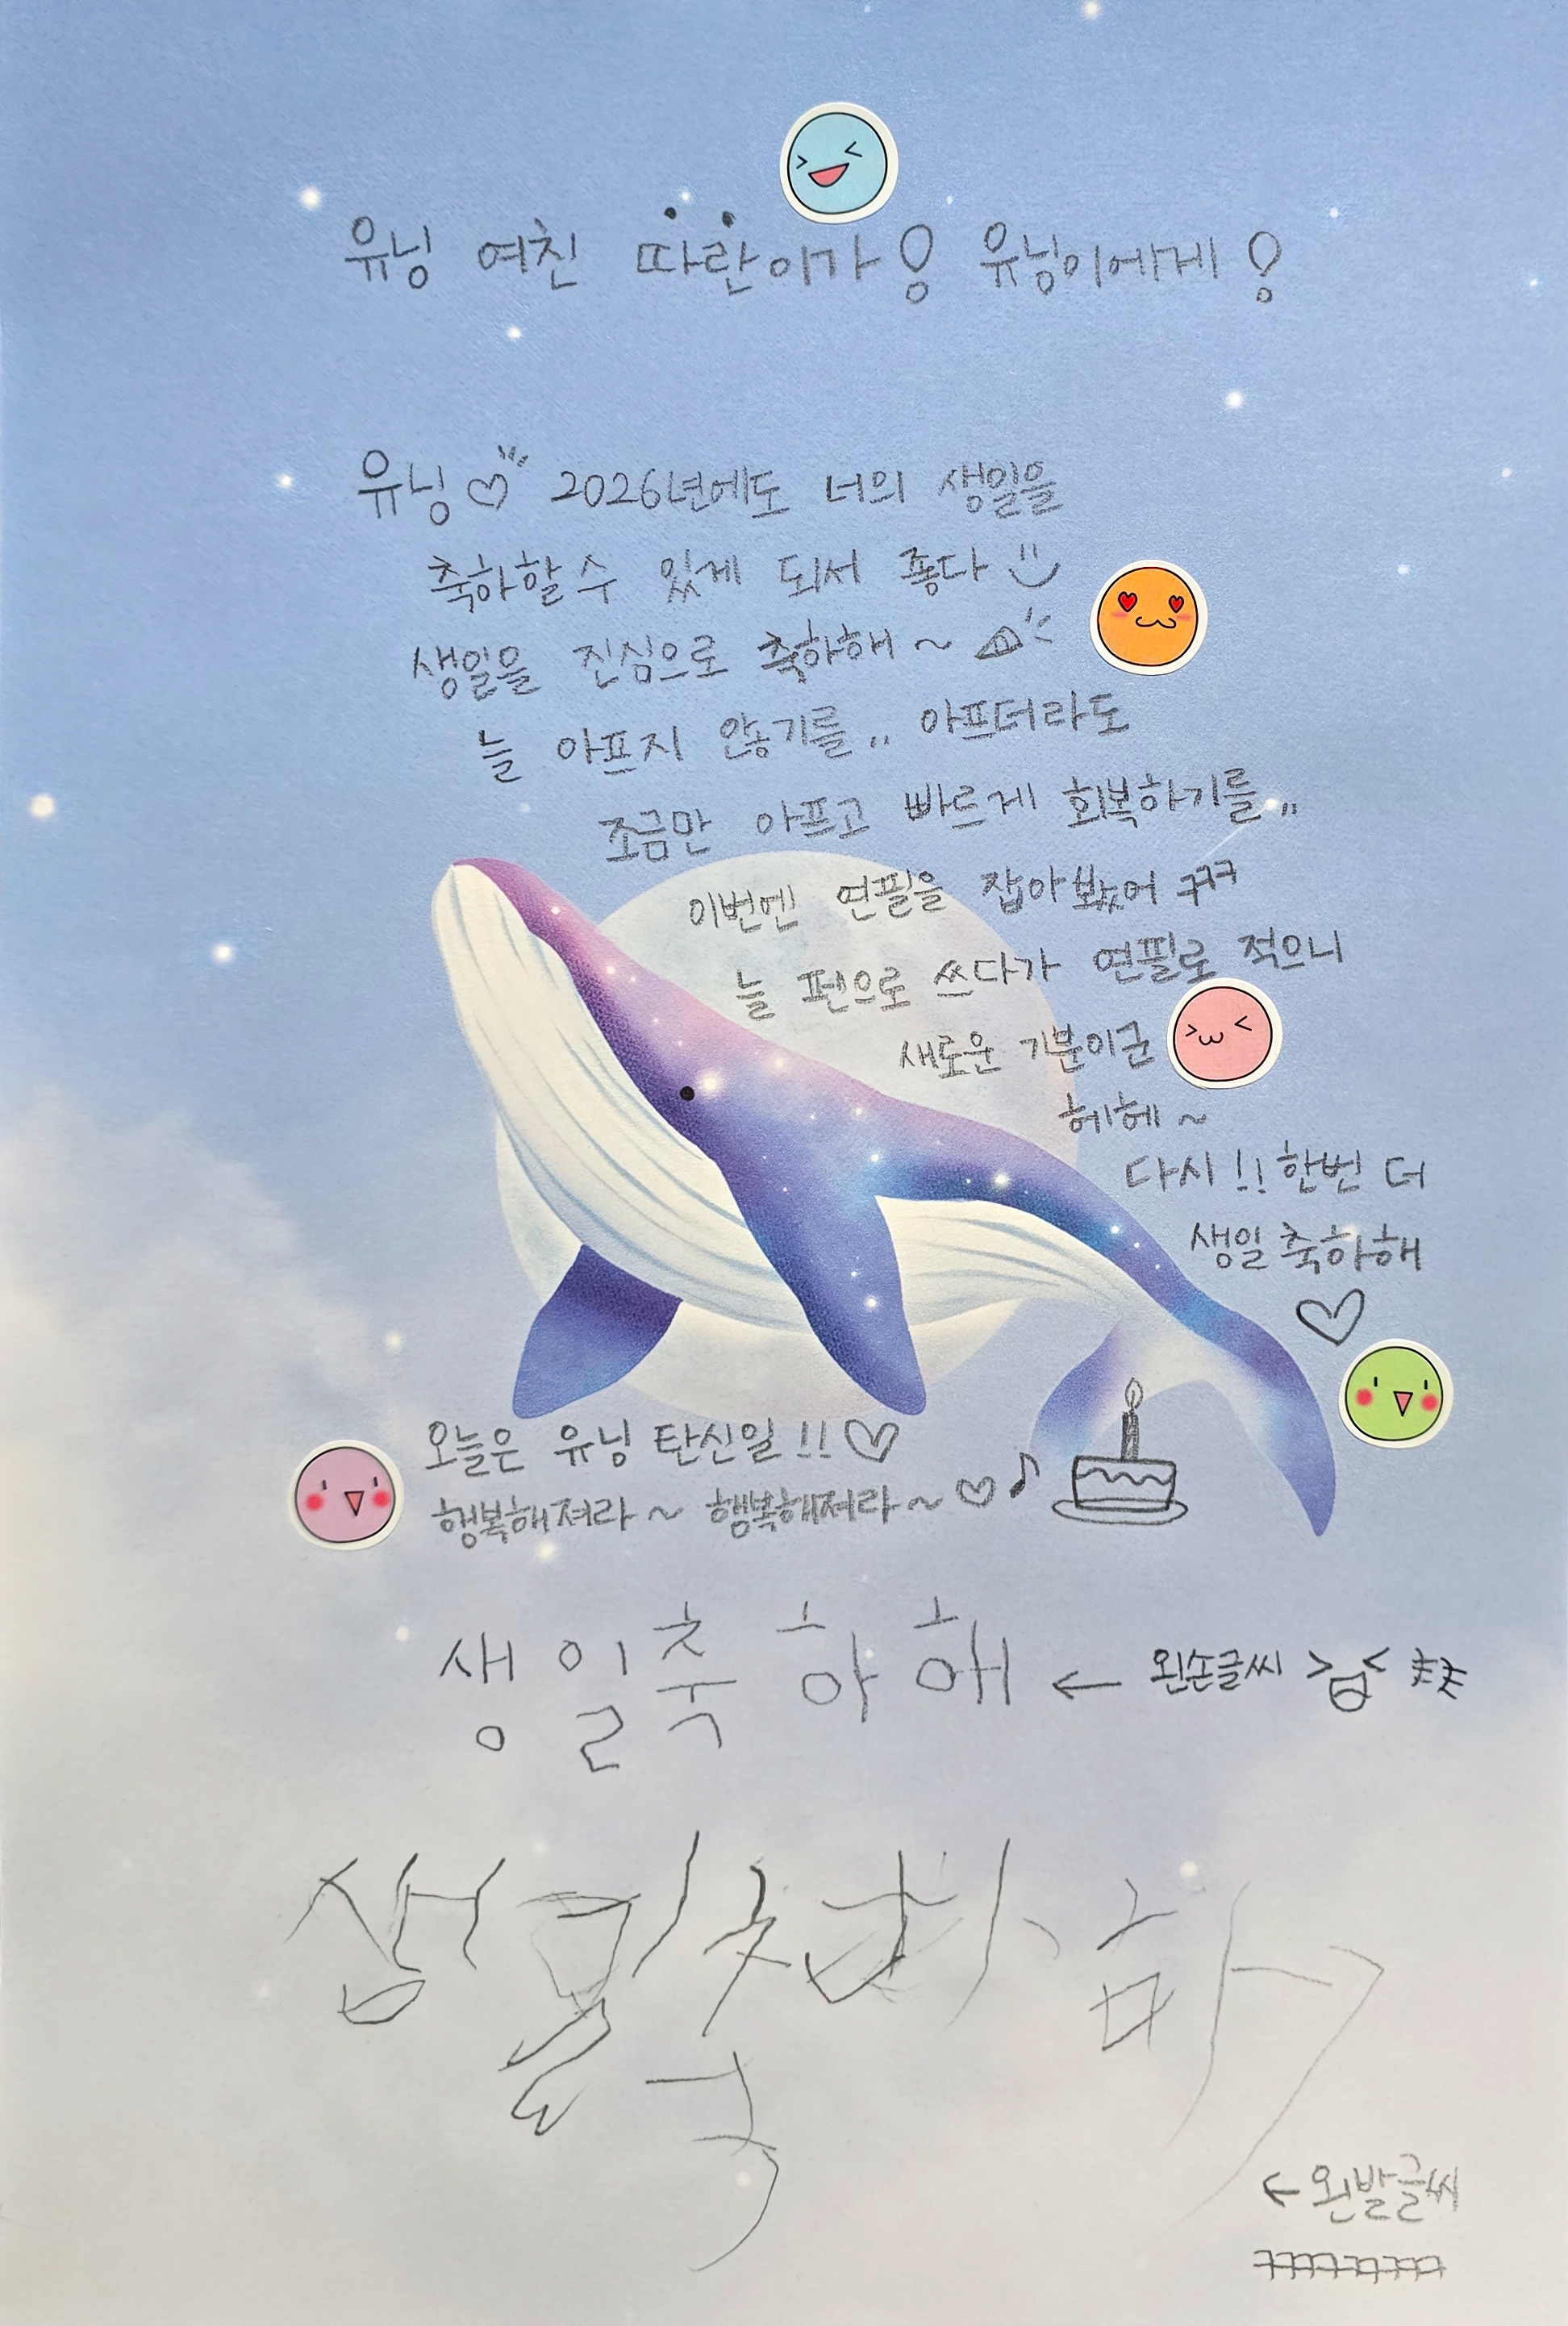 유닝 여친 따란이가! 유닝이에게!
유닝♡ 2026년에도 너의 생일을
축하할 수 있게 되서 좋다
생일을 진심으로 축하해~
늘 아프지 않기를.. 아프더라도
조금만 아프고 빠르게 회복하기를..
이번엔 연필을 잡아봤어 ㅋㅋㅋ
늘 펜으로 쓰다가 연필로 적으니
새로운 기분이군
헤헤~
다시!! 한번 더
생일 축하해
♡
오늘은 유닝 탄신일!!♡
행복해져라~ 행복해져라~♡♪
생일축하해 ← 왼손글씨 ㅊㅊ
생일축하해
← 왼발글씨
ㅋㅋㅋㅋㅋㅋㅋㅋ